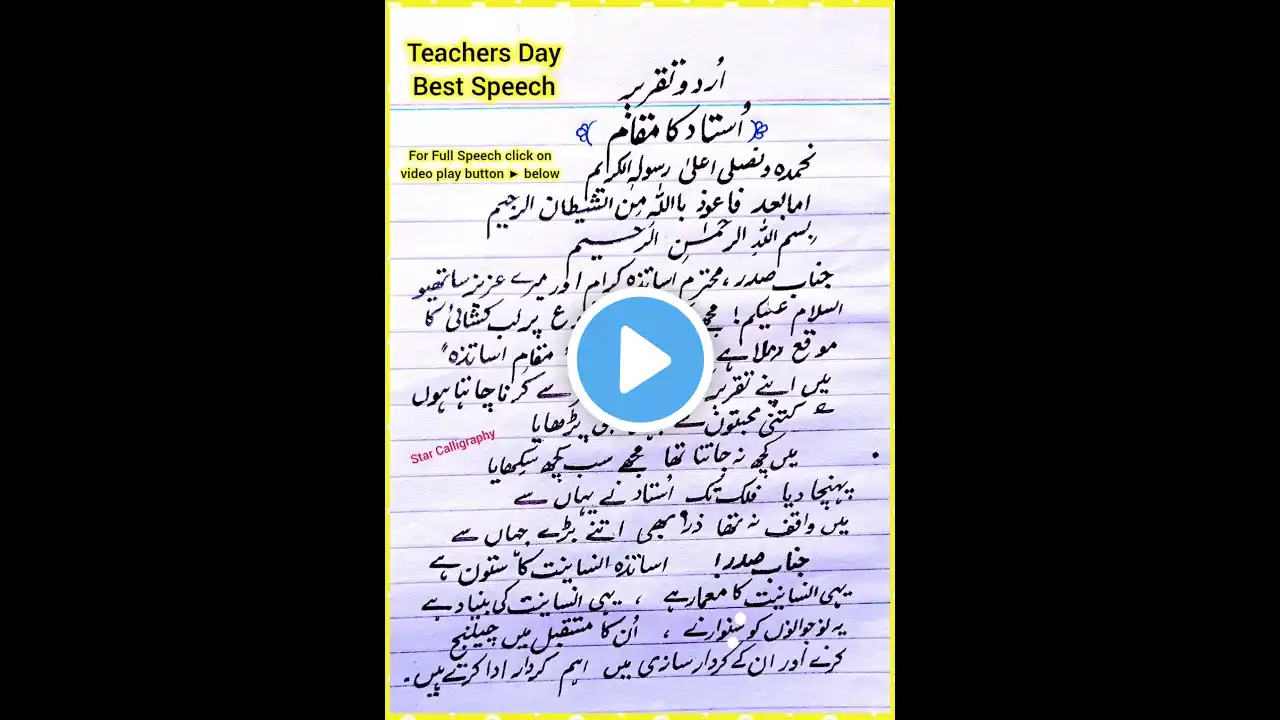 Teachers Day
Best Speech
For Full Speech click on
video play button ► below
اُردو تقریر
اُستاد کا مقام
نحمدہ ونصلی اعلیٰ رسولہ الکریم
امابعد فاعوذ باللہ مِن الشیطان الرجیم
بِسم اللہِ الرحمٰنِ الرحیم
جناب صدر، محترم اساتذہ کرام اور میرے عزیز ساتھیو
السلام علیکم! پر لب کشائی کا
موقع ملا ہے مقامِ اساتذہ"
میں اپنے تقریر سے کرنا چاہتا ہوں
کتنی محبتوں سے پڑھایا
میں کچھ نہ جانتا تھا مجھے سب کچھ سکھایا
Star Calligraphy
پہنچا دیا فلک تک اُستاد نے یہاں سے
میں واقف نہ تھا ذرا بھی اتنے بڑے جہاں سے
جناب صدر! اساتذہ انسانیت کا ستون ہے
یہی انسانیت کا معمار ہے ، یہی انسانیت کی بنیاد ہے
یہ نوجوانوں کو سنوارنے ، اُن کا مستقبل میں چیلنج
کرنے اور ان کے کردار سازی میں اہم کردار ادا کرتے ہیں۔